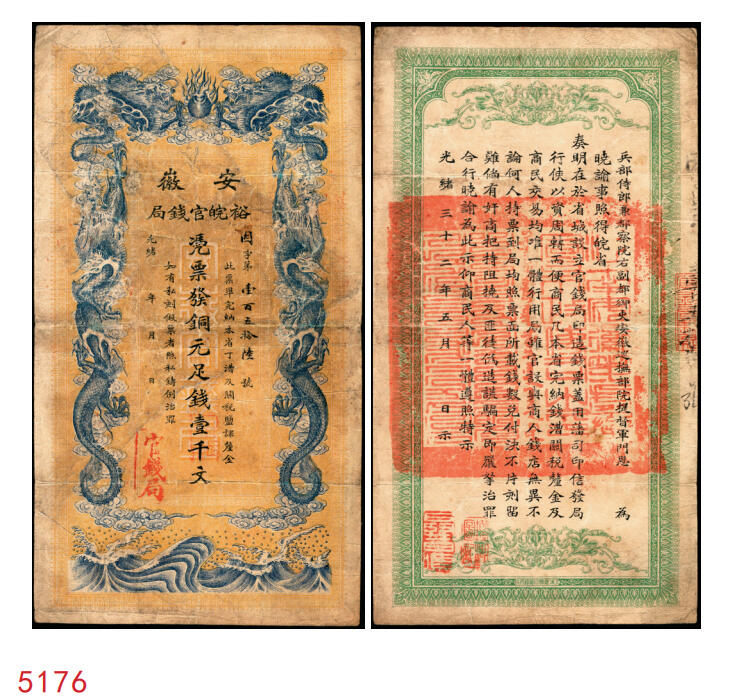 安徽
裕皖官錢局
固字第壹百五拾陸號
此票準完納本省丁漕及關稅鹽課釐金
憑票發銅元足錢壹千文
如有私刻假票者照私鑄例治罪
光緒 年 月 日
官錢局
兵部侍郎兼都察院右副都御史安徽巡撫部院提督軍門恩 為
曉諭事照得皖省
奏明在於省城設立官錢局印造錢票蓋用藩司印信發局
行使以資周轉而便商民凡本省完納錢漕關稅釐金及
商民交易均准一體行用局雖官設與商人錢店無異不
論何人持票到局均照票面所載錢數兌付決不片刻留
難倘有奸商把持阻撓及匪徒偽造謊騙定即嚴拏治罪
合行曉諭為此示仰商民人等一體遵照特示
光緒三十二年五月 日示
5176